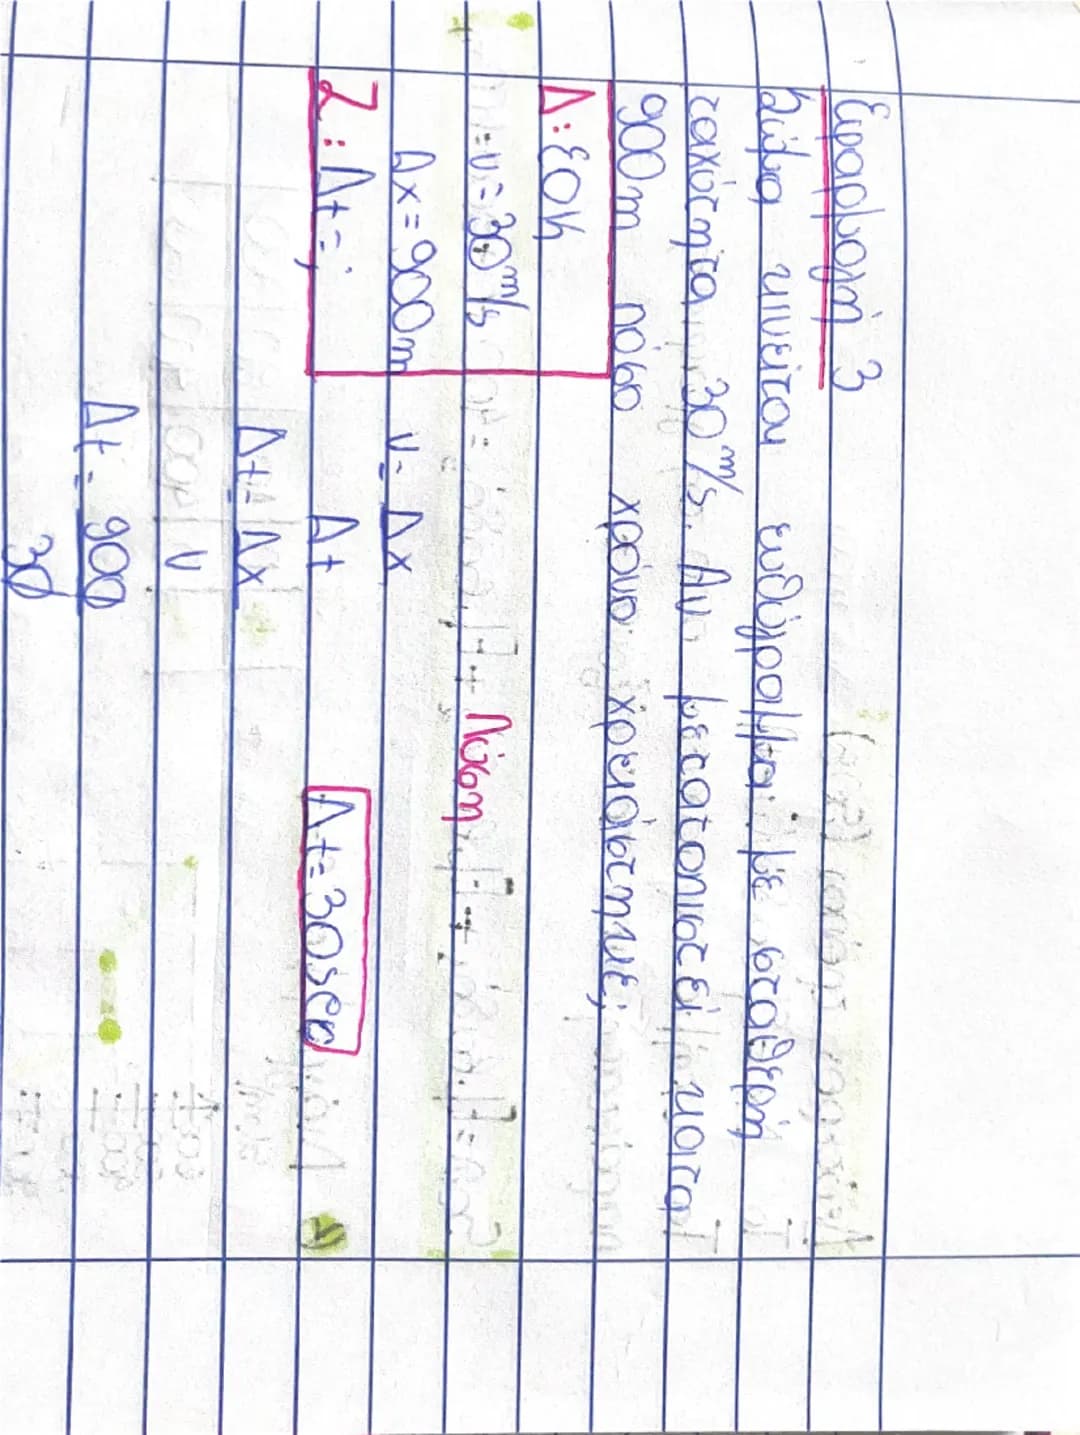 Εφαρμογή 3
Σώμα κινείται ευθύγραμμα με σταθερή
ταχύτητα 30 m/s. Αν μετατοπιστεί κατα
900m πόσο χρόνο χρειάστηκε;
Δ: ΕΟΚ
υ = 30 m/s
Δx = 900m
Ζ: Δt = ;
Λύση
υ = Δx
Δt
Δt = Δx
υ
Δt = 900
30
Δt = 30sec